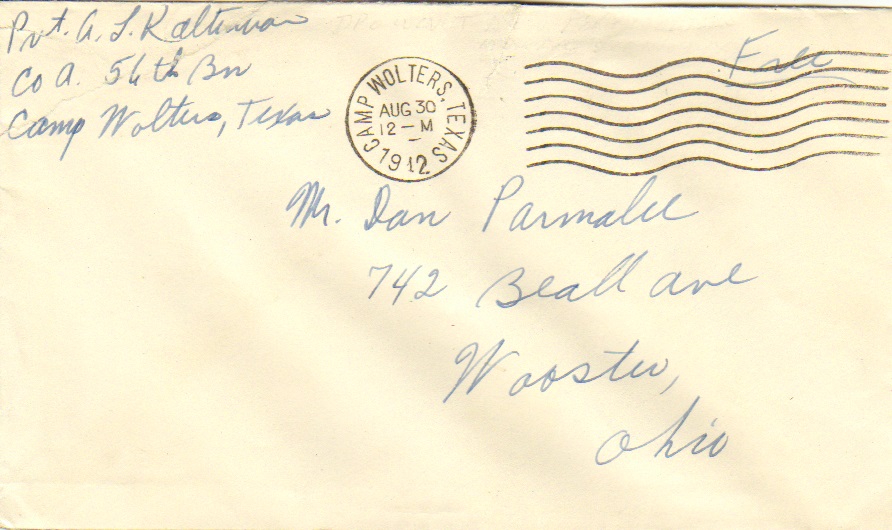 Pvt. A. L. Kalterman
Co A. 56th Bn
Camp Wolters, Texas
CAMP WOLTERS, TEXAS
AUG 30
12 - M
1942
Free
Mr. Dan Parmalee
742 Beall ave
Wooster,
Ohio